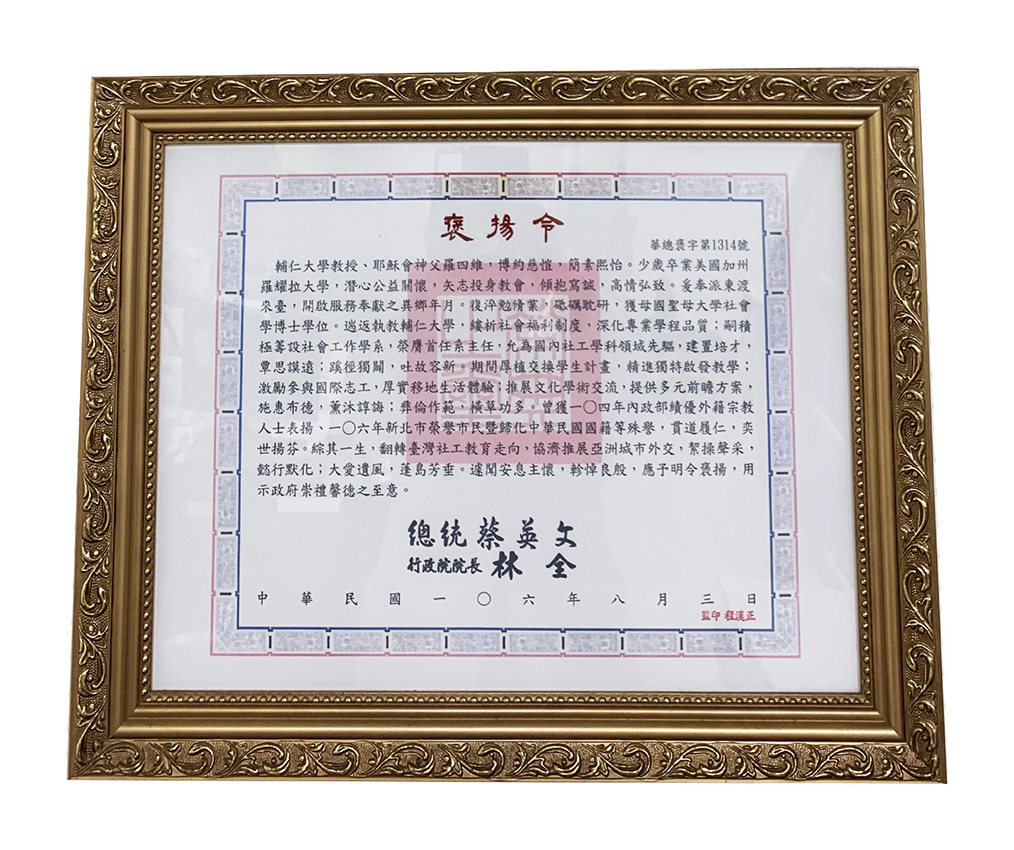 褒揚令
華總褒字第1314號
輔仁大學教授、耶穌會神父羅四維，博約慈愷，簡素熙怡。少歲卒業美國加州
羅耀拉大學，潛心公益關懷，矢志投身教會，傾抱寫誠，高情弘致。爰奉派東渡
來臺，開啟服務奉獻之異鄉年月。復淬勉脩業，砥礪耽研，獲母國聖母大學社會
學博士學位。遄返執教輔仁大學，縷折社會福利制度，深化專業學程品質；嗣積
極籌設社會工作學系，榮膺首任系主任，允為國內社工學科領域先驅，建置培才，
覃思謨遠；蹊徑獨闢，吐故容新。期間厚植交換學生計畫，精進獨特啟發教學；
激勵參與國際志工，厚實移地生活體驗；推展文化學術交流，提供多元前瞻方案，
施惠布德，薰沐諄誨；彝倫作範，橫草功多。曾獲一〇四年內政部績優外籍宗教
人士表揚、一〇六年新北市榮譽市民暨歸化中華民國國籍等殊譽，貫道履仁，奕
世揚芬。綜其一生，翻轉臺灣社工教育走向，協濟推展亞洲城市外交，絜操聲采，
懿行默化；大愛遺風，蓬島芳垂。遽聞安息主懷，軫悼良殷，應予明令褒揚，用
示政府崇禮馨德之至意。
總統 蔡英文
行政院院長 林全
中華民國一〇六年八月三日
監印 程漢正